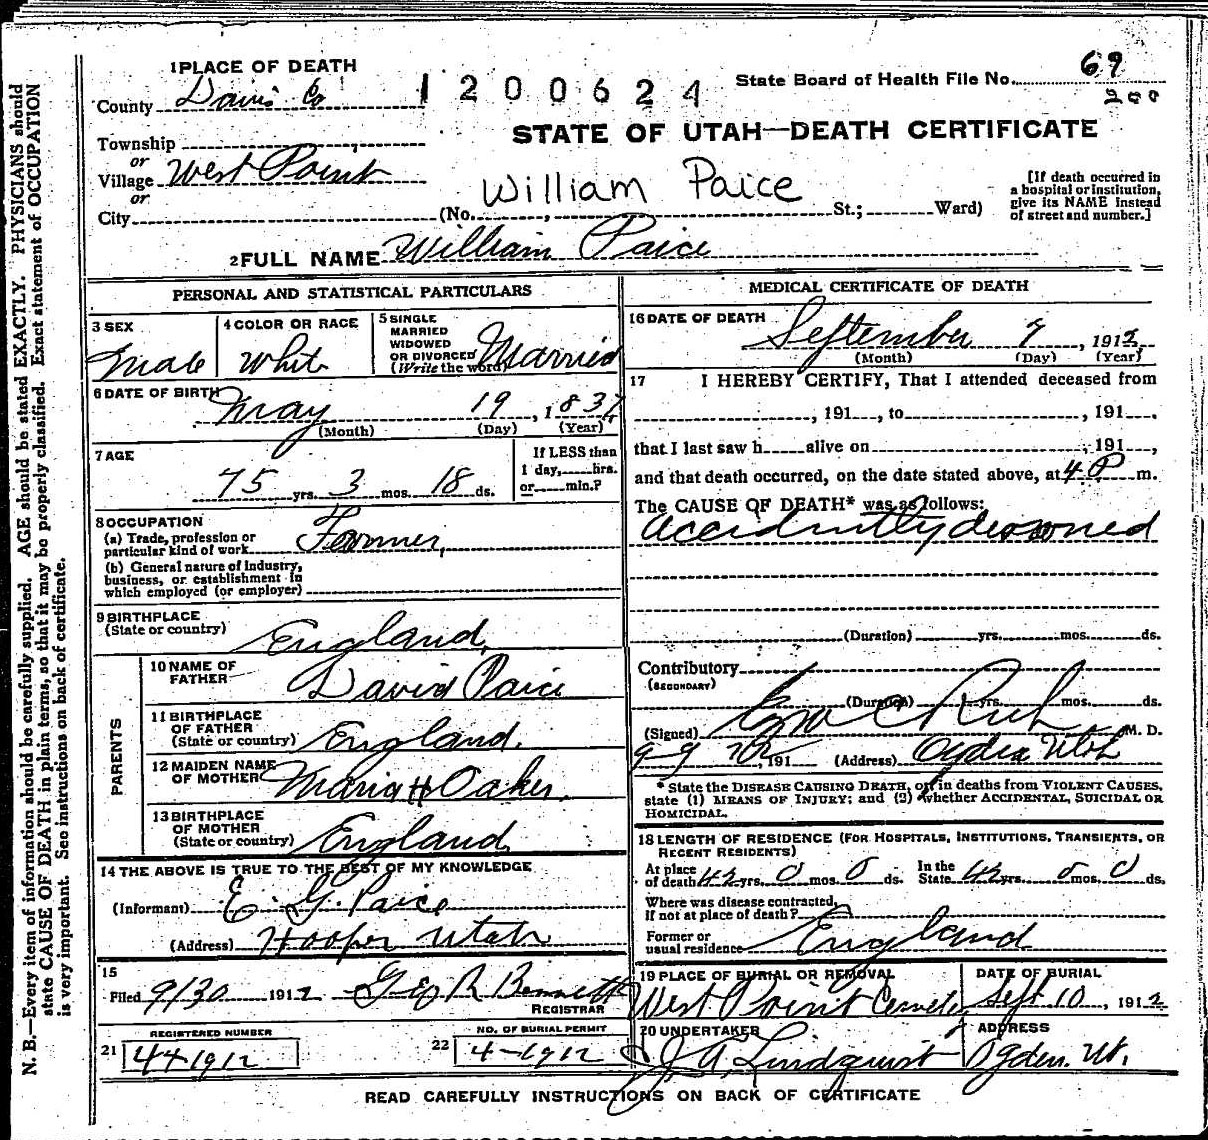 1 PLACE OF DEATH
County Davis Co
1200624
State Board of Health File No. 69
200
STATE OF UTAH—DEATH CERTIFICATE
Township
or
Village West Point
or
City
(No. , St.; Ward)
William Paice
[If death occurred in
a hospital or institution,
give its NAME instead
of street and number.]
2 FULL NAME William Paice
PERSONAL AND STATISTICAL PARTICULARS
3 SEX
Male
4 COLOR OR RACE
White
5 SINGLE
MARRIED
WIDOWED
OR DIVORCED
(Write the word)
Married
6 DATE OF BIRTH
May 19, 1837
(Month) (Day) (Year)
7 AGE
75 yrs. 3 mos. 18 ds.
If LESS than
1 day, hrs.
or min.?
8 OCCUPATION
(a) Trade, profession or
particular kind of work Farmer,
(b) General nature of industry,
business, or establishment in
which employed (or employer)
9 BIRTHPLACE
(State or country) England,
PARENTS
10 NAME OF
FATHER David Paice
11 BIRTHPLACE
OF FATHER
(State or country) England.
12 MAIDEN NAME
OF MOTHER Maria H Oaker.
13 BIRTHPLACE
OF MOTHER
(State or country) England
14 THE ABOVE IS TRUE TO THE BEST OF MY KNOWLEDGE
(Informant) E. G. Paice
(Address) Hooper Utah
15
Filed 9/30 1912 Geo R Bennett
REGISTRAR
REGISTERED NUMBER
21 44-1912
NO. OF BURIAL PERMIT
22 4-1912
MEDICAL CERTIFICATE OF DEATH
16 DATE OF DEATH
September 7, 1912
(Month) (Day) (Year)
17 I HEREBY CERTIFY, That I attended deceased from
, 191 , to , 191 ,
that I last saw h alive on , 191 ,
and that death occurred, on the date stated above, at 4 P m.
The CAUSE OF DEATH* was as follows:
accidently drowned
(Duration) yrs. mos. ds.
Contributory
(SECONDARY)
(Duration) yrs. mos. ds.
(Signed) C Rich M. D.
9-9 , 191 (Address) Ogden Utah
* State the DISEASE CAUSING DEATH, or in deaths from VIOLENT CAUSES,
state (1) MEANS OF INJURY; and (2) whether ACCIDENTAL, SUICIDAL OR
HOMICIDAL.
18 LENGTH OF RESIDENCE (FOR HOSPITALS, INSTITUTIONS, TRANSIENTS, OR
RECENT RESIDENTS)
At place
of death 42 yrs. 0 mos. 0 ds.
In the
State 42 yrs. 0 mos. 0 ds.
Where was disease contracted,
If not at place of death?
Former or
usual residence England
19 PLACE OF BURIAL OR REMOVAL
West Point Cemetery
DATE OF BURIAL
Sept 10, 1912
20 UNDERTAKER
J. A. Lindquist
ADDRESS
Ogden. Ut.
READ CAREFULLY INSTRUCTIONS ON BACK OF CERTIFICATE
N. B.—Every item of information should be carefully supplied. AGE should be stated EXACTLY. PHYSICIANS should
state CAUSE OF DEATH in plain terms, so that it may be properly classified. Exact statement of OCCUPATION
is very important. See instructions on back of certificate.